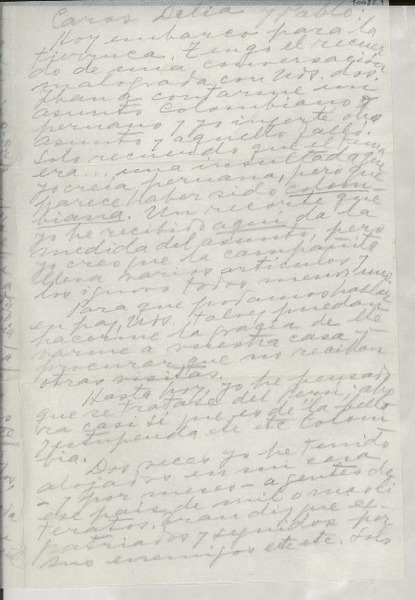 Caros Delia y Pablo:
Hoy embarco para la
tierruca. Tengo el recuer-
do de una conversación
malograda con Uds. dos.
Iban a contarme un
asunto colombiano y
peruano y yo injerté otro
asunto y aquello falló.
Solo recuerdo que el tema
era... una insultada que
yo creía peruana, pero que
parece haber sido colom-
biana. Un recorte que
yo he recibido aquí da la
medida del asunto, pero
yo creo que la campañita
lleva varios artículos y
los ignoro todos, menos uno.
Para que podamos hablar
en paz, Uds. talvez puedan
hacerme la gracia de lle-
varme a vuestra casa y
procurar que no reciban
otras visitas.
Hasta hoy yo he pensado
que se tratase del Perú; aho-
ra casi sí que es de la bella
y estupenda etc etc Colom-
bia.
Dos veces yo he tenido
alojados en mi casa
- y por meses - agentes de
ese país de mil o más li-
teratos. Grandes que ex-
patriados y seguidos por
sus enemigos etc etc. Solo